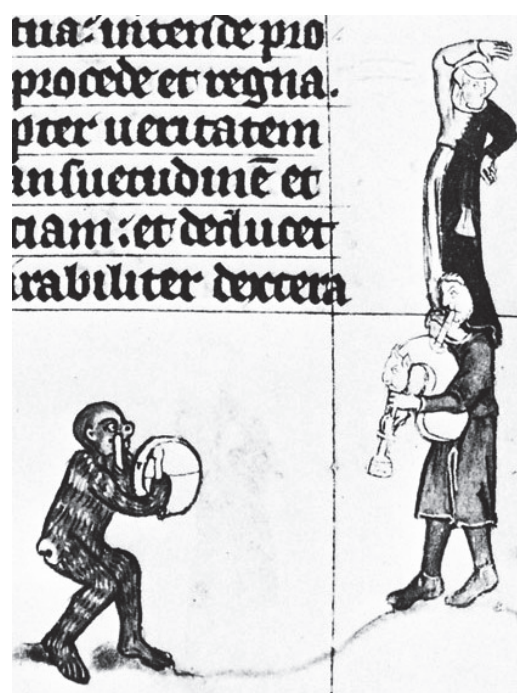 tua: intende pro
procede et regna.
pter ueritatem
ansuetudinē et
ciam: et deducet
irabiliter dextera